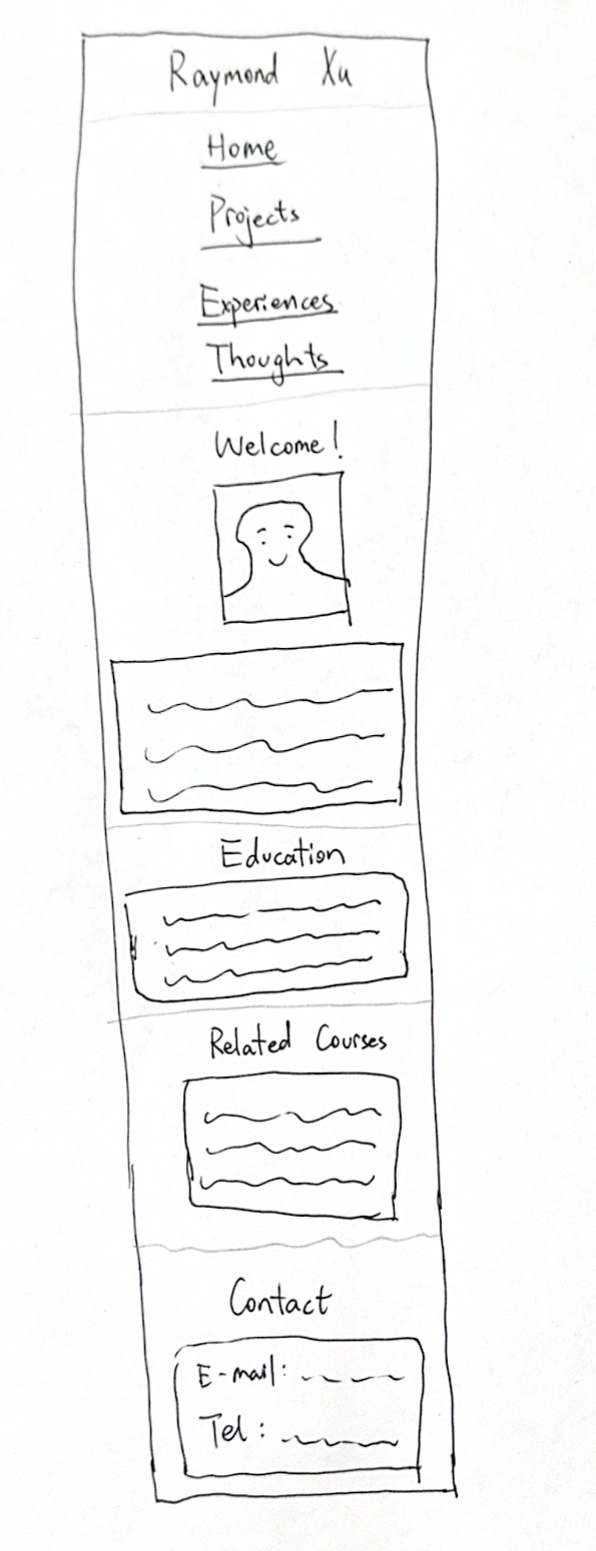 Raymond Xu
Home
Projects
Experiences
Thoughts
Welcome!
Education
Related Courses
Contact
E-mail:
Tel: